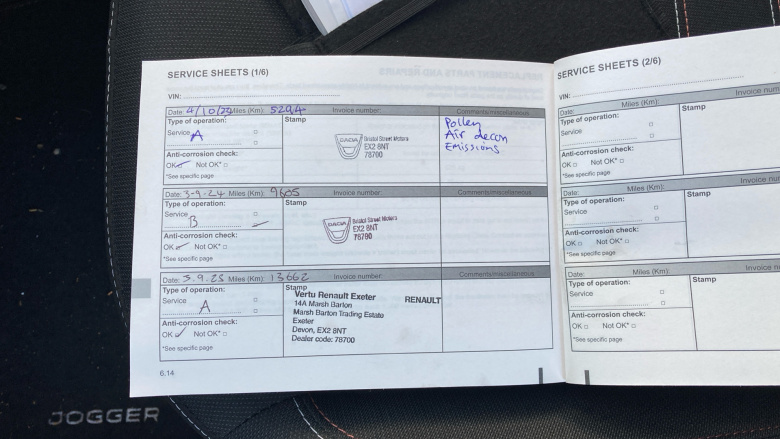 SERVICE SHEETS (1/6)
VIN:
Date: 4/10/23 Miles (Km): 5294 Invoice number: Comments/miscellaneous
Type of operation: Stamp
Service A
Anti-corrosion check:
OK Not OK*
*See specific page
DACIA
Bristol Street Motors
EX2 8NT
78700
Pollen
Air decon
Emissions
Date: 3-9-24 Miles (Km): 9605 Invoice number: Comments/miscellaneous
Type of operation: Stamp
Service
B
Anti-corrosion check:
OK Not OK*
*See specific page
DACIA
Bristol Street Motors
EX2 8NT
78700
Date: 3.9.25 Miles (Km): 13662 Invoice number: Comments/miscellaneous
Type of operation: Stamp
Service
A
Anti-corrosion check:
OK Not OK*
*See specific page
Vertu Renault Exeter RENAULT
14A Marsh Barton
Marsh Barton Trading Estate
Exeter
Devon, EX2 8NT
Dealer code: 78700
6.14
SERVICE SHEETS (2/6)
VIN:
Date: Miles (Km):
Type of operation: Stamp
Service
Anti-corrosion check:
OK Not OK*
*See specific page
Date: Miles (Km):
Type of operation: Stamp
Service
Anti-corrosion check:
OK Not OK*
*See specific page
Date: Miles (Km):
Type of operation: Stamp
Service
Anti-corrosion check:
OK Not OK*
*See specific page
JOGGER